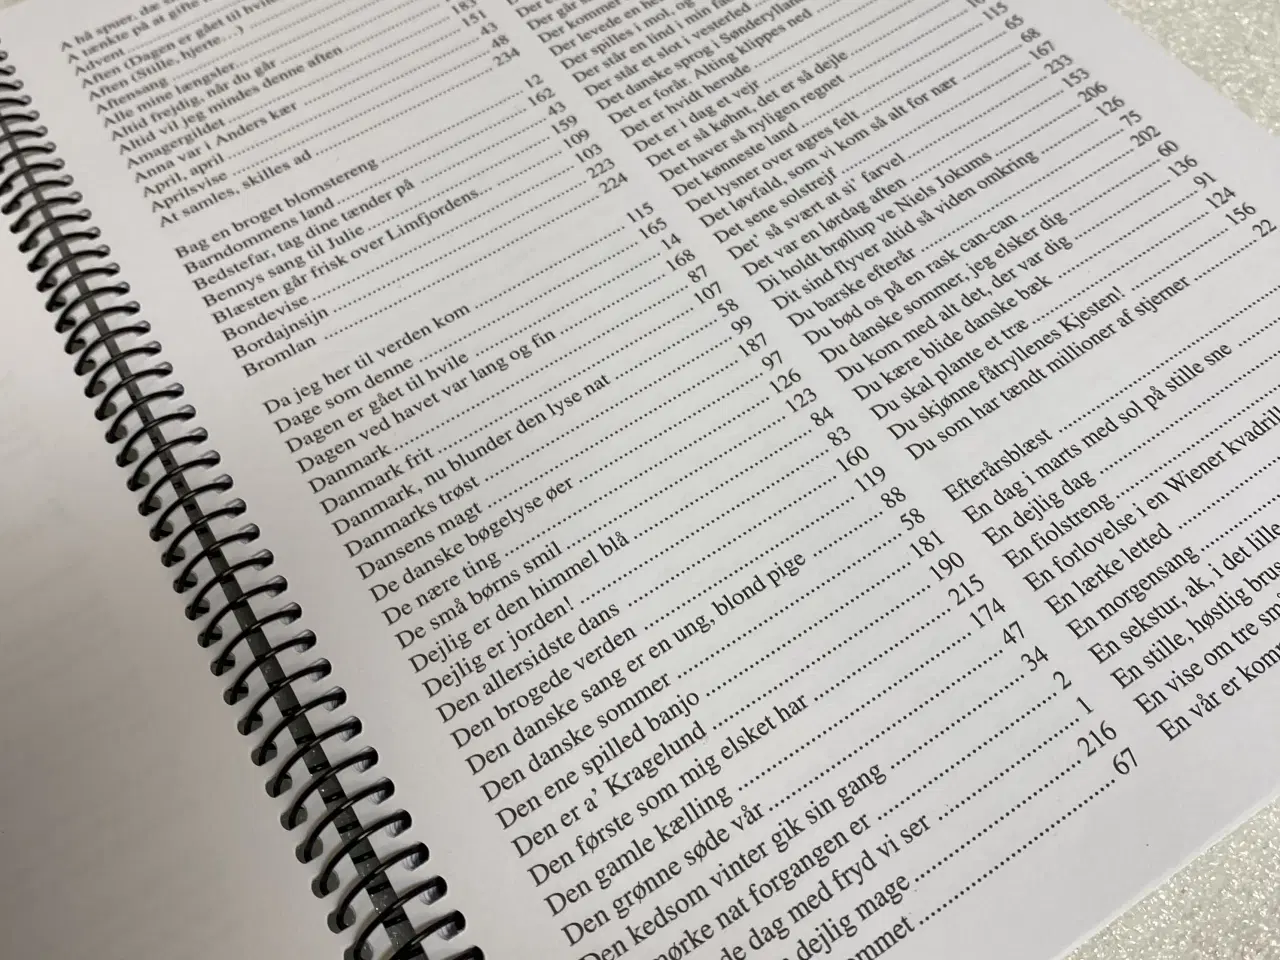 A hå spuner, dar
A tænkte på at gifte
Advent
Aften (Dagen er gået til hvile
Aften (Stille, hjerte...)
Aftensang
Alle mine længsler
Altid frejdig, når du går
Altid vil jeg mindes denne aften
Amagergildet ... 183
Anna var i Anders kær ... 151
April, april ... 43
Aprilsvise ... 48
At samles, skilles ad ... 234
Bag en broget blomstereng ... 12
Barndommens land ... 162
Bedstefar, tag dine tænder på ... 43
Bennys sang til Julie ... 159
Blæsten går frisk over Limfjordens... ... 109
Bondevise ... 103
Bordajnsijn ... 223
Bromlan ... 224
Da jeg her til verden kom ... 115
Dage som denne ... 165
Dagen er gået til hvile ... 14
Dagen ved havet var lang og fin ... 168
Danmark ... 87
Danmark frit ... 107
Danmark, nu blunder den lyse nat ... 58
Danmarks trøst ... 99
Dansens magt ... 187
De danske bøgelyse øer ... 97
De nære ting ... 126
De små børns smil ... 123
Dejlig er den himmel blå ... 84
Dejlig er jorden! ... 83
Den allersidste dans ... 160
Den brogede verden ... 119
Den danske sang er en ung, blond pige ... 88
Den danske sommer ... 58
Den ene spilled banjo ... 181
Den er a' Kragelund ... 190
Den første som mig elsket har ... 215
Den gamle kælling ... 174
Den grønne søde vår ... 47
Den kedsom vinter gik sin gang ... 34
mørke nat forgangen er ... 2
de dag med fryd vi ser ... 1
dejlig mage ... 216
ommet ... 67
Der går
Der kommer
Der levede en he
Der spilles i mol, og
Der står en lind i min fa
Der står et slot i vesterled
Det danske sprog i Sønderjyllan
Det er forår. Alting klippes ned
Det er hvidt herude
Det er i dag et vejr
Det er så køhnt, det er så dejle
Det haver så nyligen regnet
Det kønneste land ... 115
Det lysner over agres felt ... 65
Det løvfald, som vi kom så alt for nær ... 68
Det sene solstrejf ... 167
Det' så svært at si' farvel ... 233
Det var en lørdag aften ... 153
Di holdt brøllup ve Niels Jokums ... 206
Dit sind flyver altid så viden omkring ... 126
Du barske efterår ... 75
Du bød os på en rask can-can ... 202
Du danske sommer, jeg elsker dig ... 60
Du kom med alt det, der var dig ... 136
Du kære blide danske bæk ... 91
Du skal plante et træ ... 124
Du skjønne fåtryllenes Kjesten! ... 156
Du som har tændt millioner af stjerner ... 22
Efterårsblæst
En dag i marts med sol på stille sne
En dejlig dag
En fiolstreng
En forlovelse i en Wiener kvadril
En lærke letted
En morgensang
En sekstur, ak, i det lille
En stille, høstlig brus
En vise om tre sm
En vår er kom